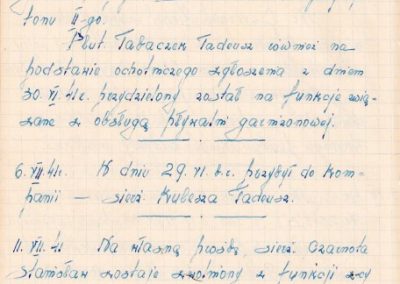 tonu II-go.
Plut. Tabaczek Tadeusz również na
podstawie ochotniczego zgłoszenia z dniem
30. VI. 41r. przydzielony został na funkcje zwią-
zane z obsługą pływalni garnizonowej.
6. VII. 41r. W dniu 29. VI. b.r. przybył do kom-
panii — sierż. Kubesza Tadeusz.
11. VII. 41 Na własną prośbę, sierż. Czarnota
Stanisław zostaje zwolniony z funkcji